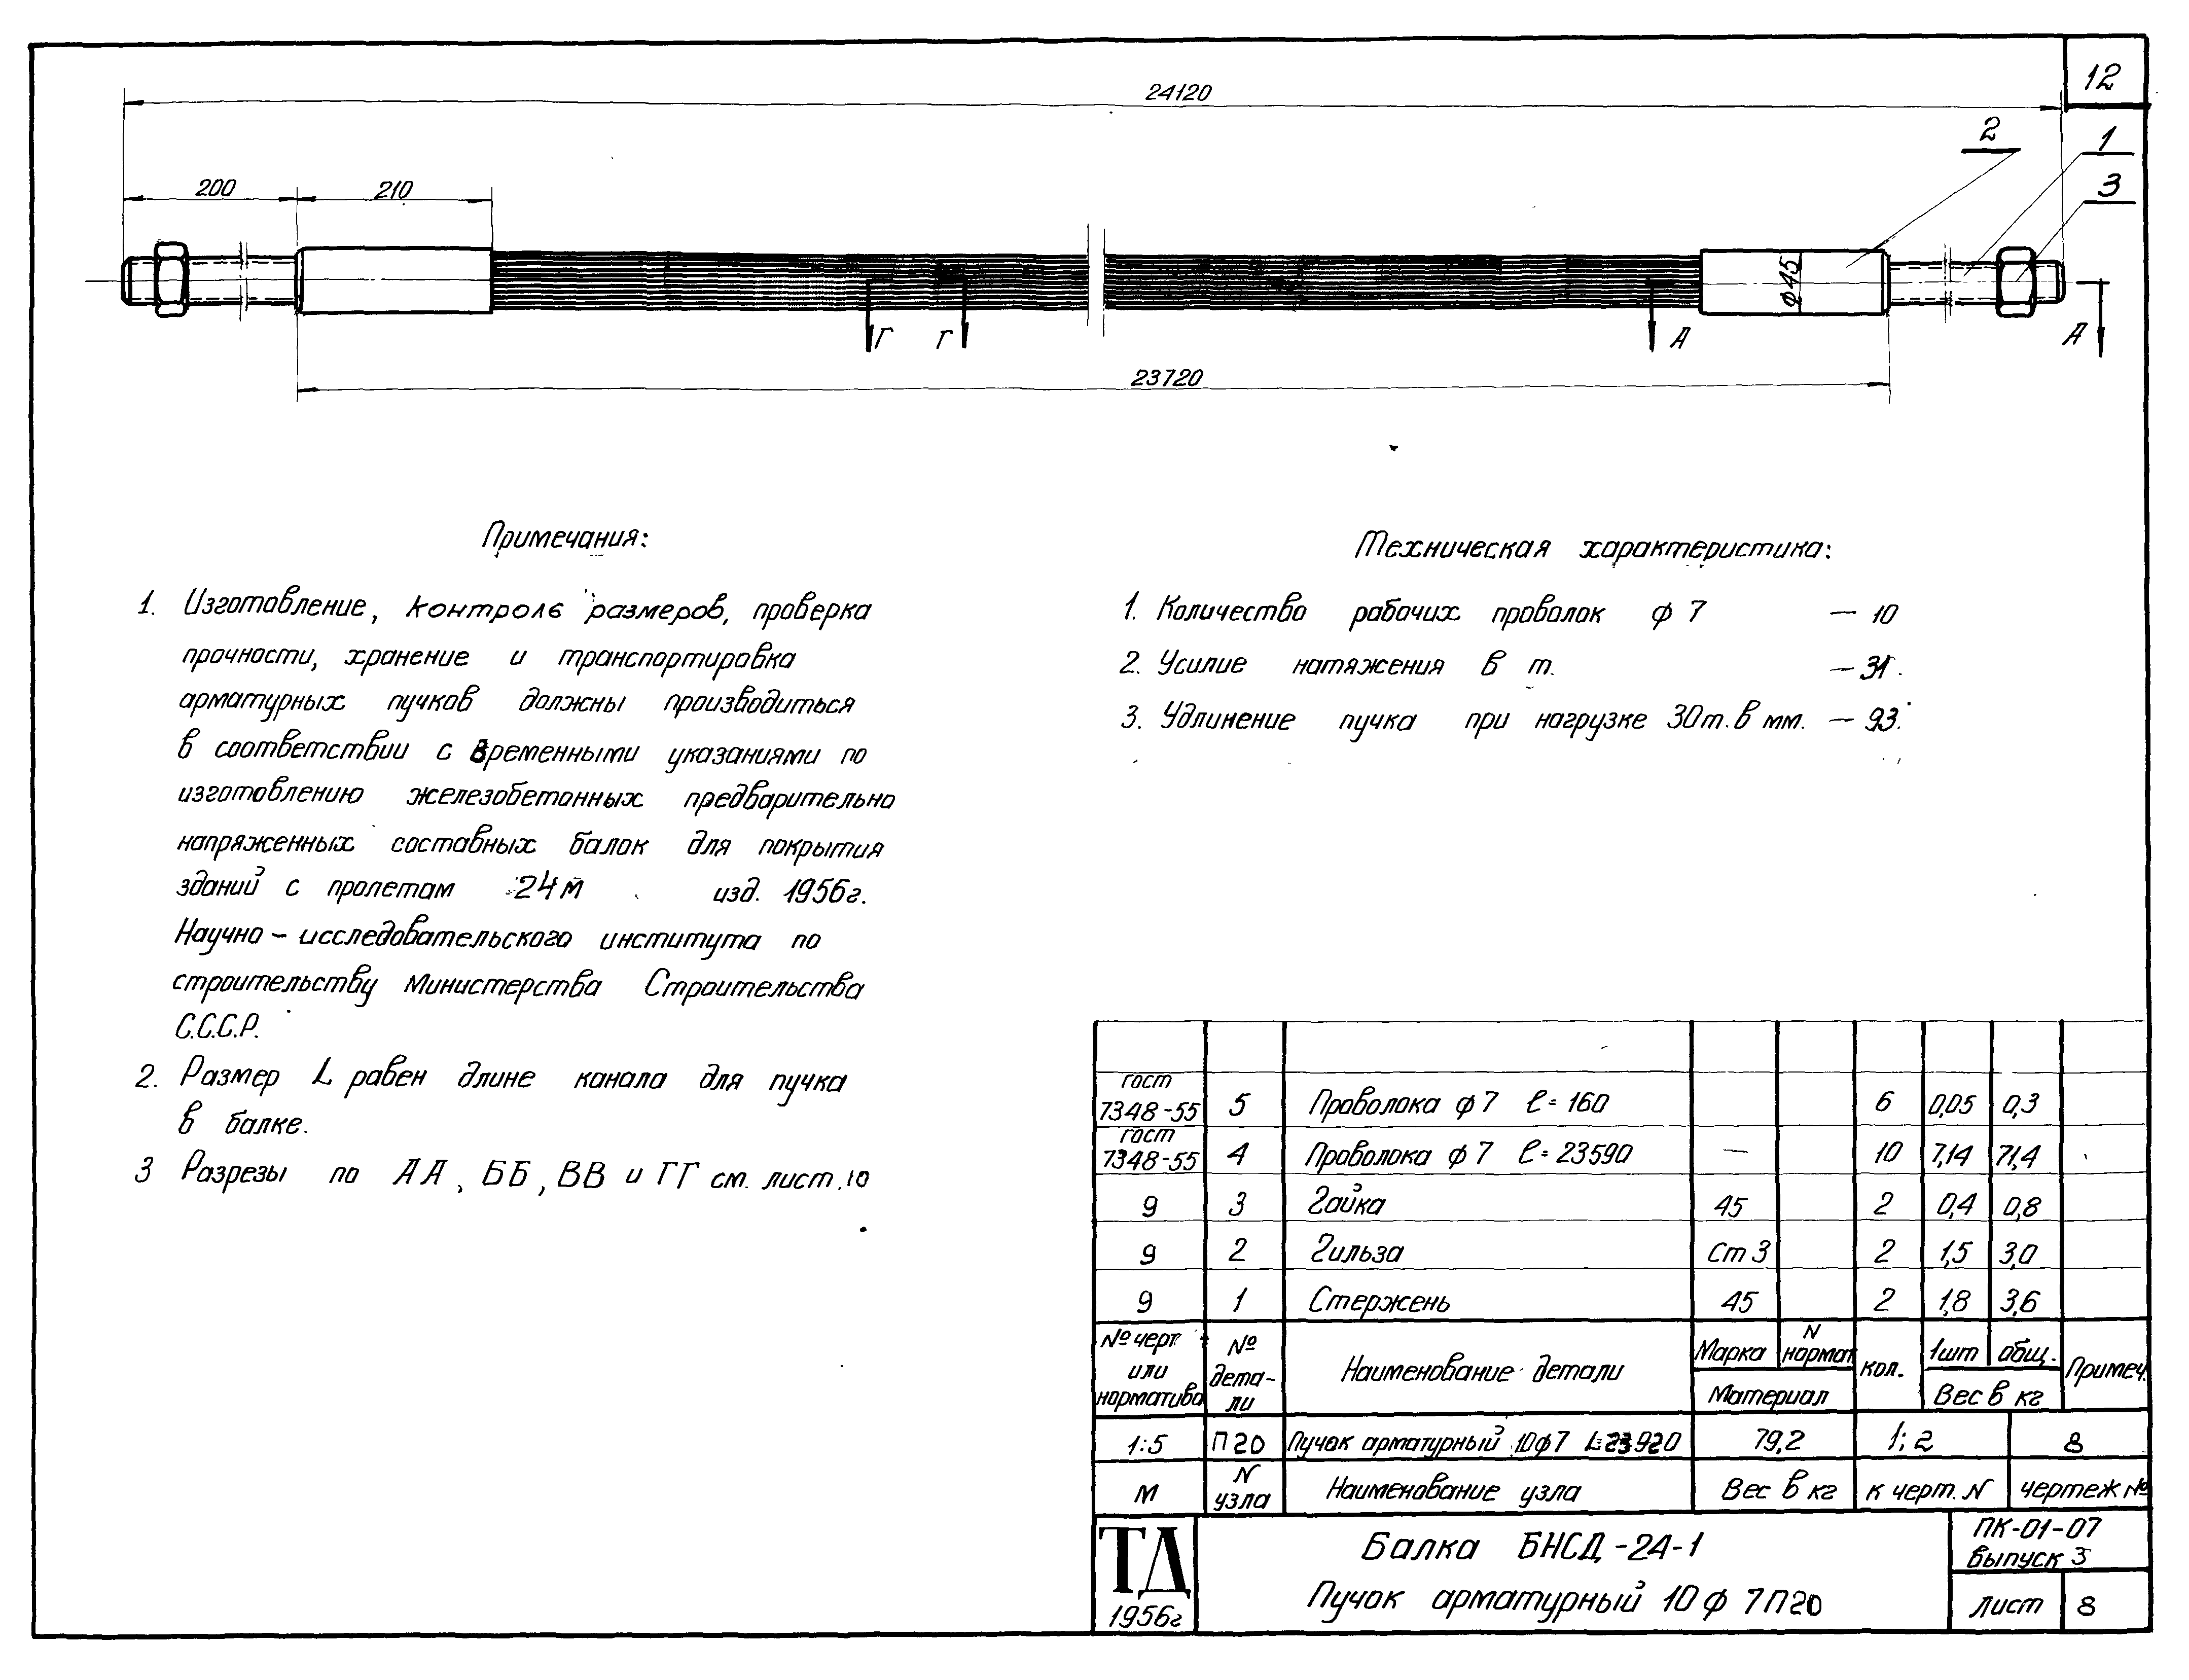 12
24120
2
1
3
200
210
ф45
Г Г А А
23720
Примечания:
1. Изготовление, контроль размеров, проверка
прочности, хранение и транспортировка
арматурных пучков должны производиться
в соответствии с временными указаниями по
изготовлению железобетонных предварительно
напряженных составных балок для покрытия
зданий с пролетам 24м изд. 1956г.
Научно-исследовательского института по
строительству министерства Строительства
С.С.С.Р.
2. Размер L равен длине канала для пучка
в балке.
3 Разрезы по АА, ББ, ВВ и ГГ см. лист.10
Техническая характеристика:
1. Количество рабочих проволок ф 7 — 10
2. Усилие натяжения в т. — 31.
3. Удлинение пучка при нагрузке 30т. в мм. — 93.
гост
7348-55 5 Проволока ф 7 ℓ=160 6 0,05 0,3
гост
7348-55 4 Проволока ф 7 ℓ=23590 — 10 7,14 71,4
9 3 Гайка 45 2 0,4 0,8
9 2 Гильза Ст 3 2 1,5 3,0
9 1 Стержень 45 2 1,8 3,6
№ черт или норматива № дета-ли Наименование детали Марка N нормат. Материал кол. 1шт общ. Вес в кг Примеч.
1:5 П20 Пучок арматурный 10ф7 L=23920 79,2 1; 2 8
М N узла Наименование узла Вес в кг к черт. N чертеж №
ТД
1956г
Балка БНСД-24-1
Пучок арматурный 10 ф 7П20
ПК-01-07
выпуск 3
лист 8